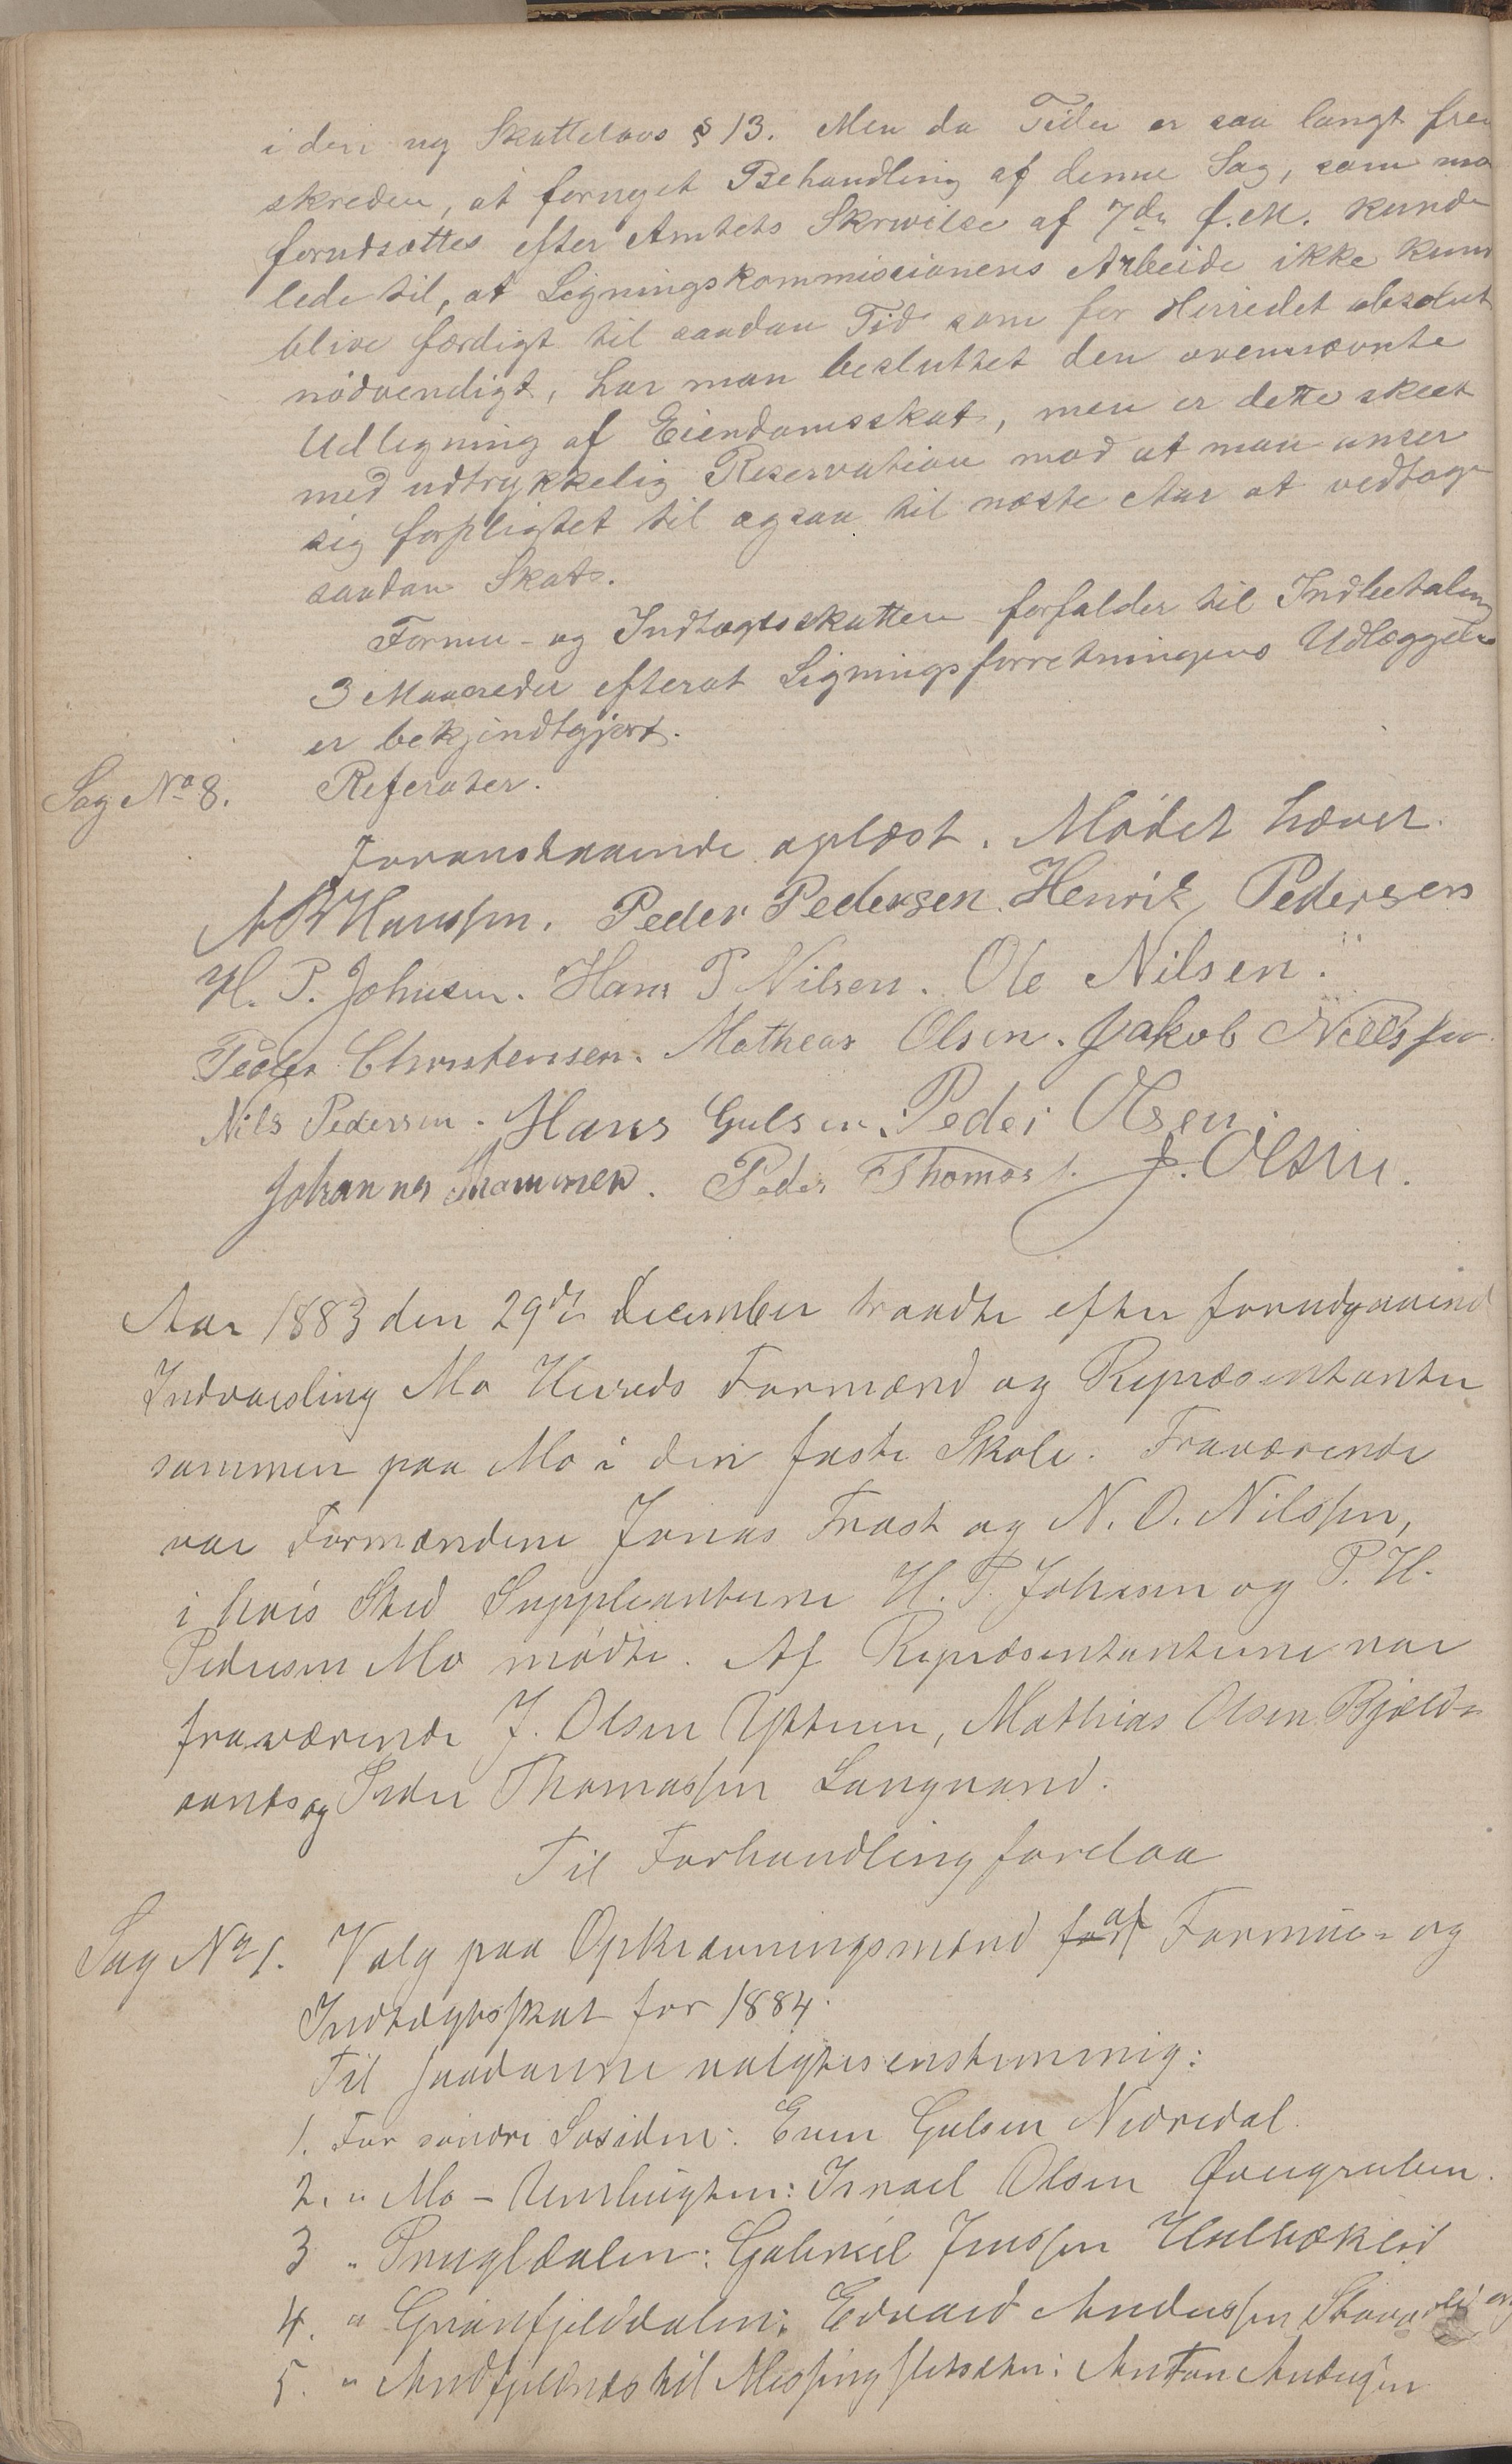 i den ny Skattelovs § 13. Men da Tiden er saa langt frem
skreden, at fornyet Behandling af denne Sag, som maa
forudsættes efter Amtets Skrivelse af 7de f.M. kunde
lede til, at Ligningskommissionens Arbeide ikke kunde
blive færdigt til saadan Tid som for Herredet absolut
nödvendigt, har man besluttet den ovennævnte
Udligning af Eiendomsskat, men er dette skeet
med udtrykkelig Reservation mod at man anser
sig forpligtet til ogsaa til næste Aar at vedtage
saadan Skat.
Formu- og Indtægtsskatten forfalder til Indbetaling
3 Maaneder efterat Ligningsforretningens Udlæggelse
er bekjendtgjort.
Sag No 8. Referater.
Foranstaaende oplæst. Mödet hævet.
Peder Pedersen. Henrik Pedersen
H. P. Johnsen. Hans P Nilsen. Ole Nilsen.
Peder Christensen. Matheas Olsen. Jakob Nielssen
Nils Pedersen. Hans Gulsen. Peder Olsen.
Johannes Thommesen. Peder Thomass. J. Olsen.
Aar 1883 den 29de December traadte efter forudgaaende
Indvarsling Mo Herreds Formænd og Repræsentanter
sammen paa Mo i den faste Skole. Fraværende
var Formændene Jonas Frost og N. O. Nilssen,
i hvis Sted Suppleanterne H. P. Johnsen og P. H.
Pedersen Mo mödte. Af Repræsentanterne var
fraværende J. Olsen Ytteren, Mathias Olsen Bjeld-
aanes og Peder Thomassen Langvand.
Til Forhandling forelaa
Sag No 1. Valg paa Opkrævningsmænd for af Formue- og
Indtægtsskat for 1884.
Til saadanne valgtes enstemmig:
1. For söndre Losiden: Even Gulsen Nedredal.
2. " Mo-Umbugten: Israel Olsen
3 " Gabriel Jenssen
4. " Grönfjelddalen: Edvard Anderssen
5. " Andfjeldnæs til Messingsletten: Anton Andersen